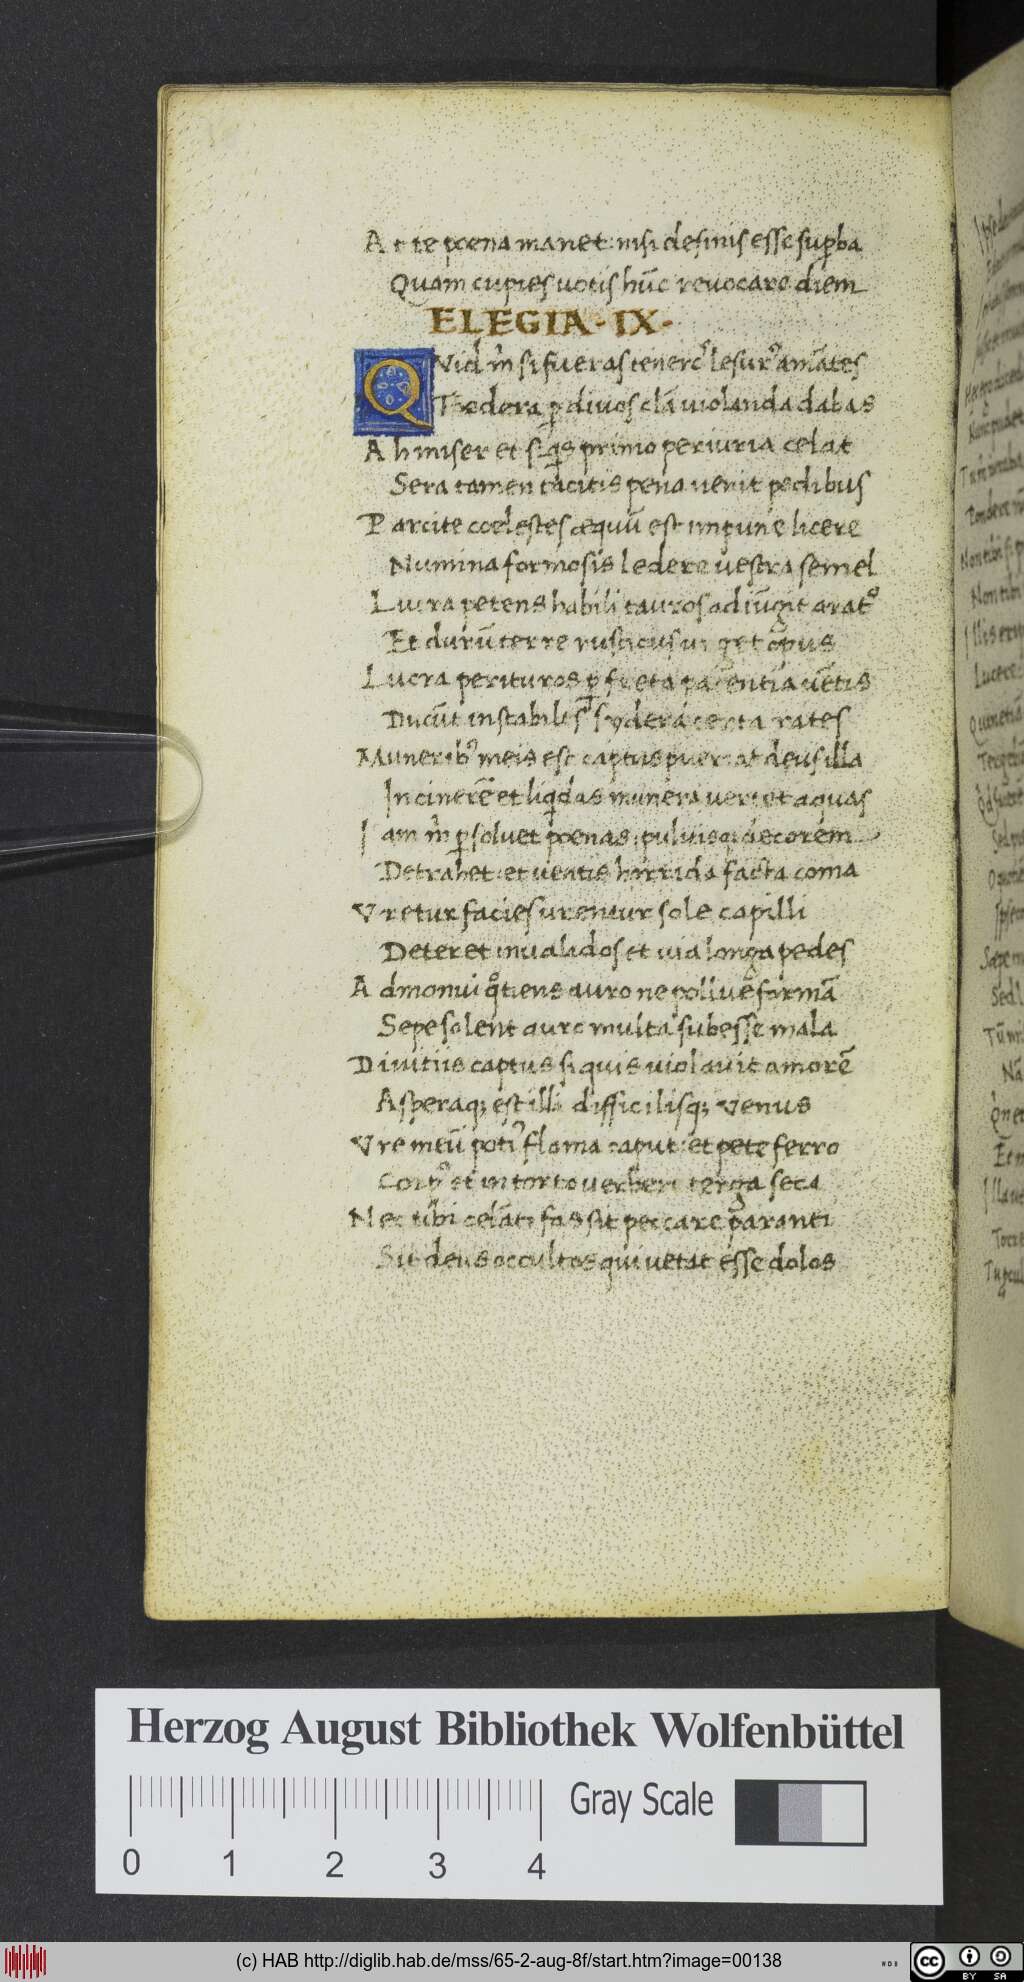 At te poena manet: nisi desinis esse supba
Quam cupies votis hūc revocare diem
ELEGIA·IX·
QVid m̄ si fueras tenero lesur' amātes
Foedera p divos clā violanda dabas
Ah miser et si qs primo periuria celat
Sera tamen tacitis pena venit pedibus
Parcite coelestes æquū est impune licere
Numina formosis ledere vestra semel
Lucra petens habili tauros adiūgit arato
Et durū terre rusticus urget opus
Lucra perituros p freta parentia vētis
Ducūt instabiles sydera certa rates
Munerib' meis est captus puer: at deus illa
In cinerē et liqidas munera vertet aquas
Iam m̄ psolvet poenas: pulvisq; decorem
Detrahet: et ventis horrida facta coma
Vretur facies urentur sole capilli
Deteret invalidos et via longa pedes
Admonui qtiens auro ne pollue formā
Sepe solent auro multa subesse mala
Divitiis captus si quis violavit amorē
Asperaq; est illi difficilisq; Venus
Vre meū poti' flama caput: et pete ferro
Corp' et intorto verbere terga seca
Nec tibi celāti fas sit peccare paranti
Sit deus occultos qui vetat esse dolos
Herzog August Bibliothek Wolfenbüttel
Gray Scale
0 1 2 3 4
(c) HAB http://diglib.hab.de/mss/65-2-aug-8f/start.htm?image=00138
cc BY SA